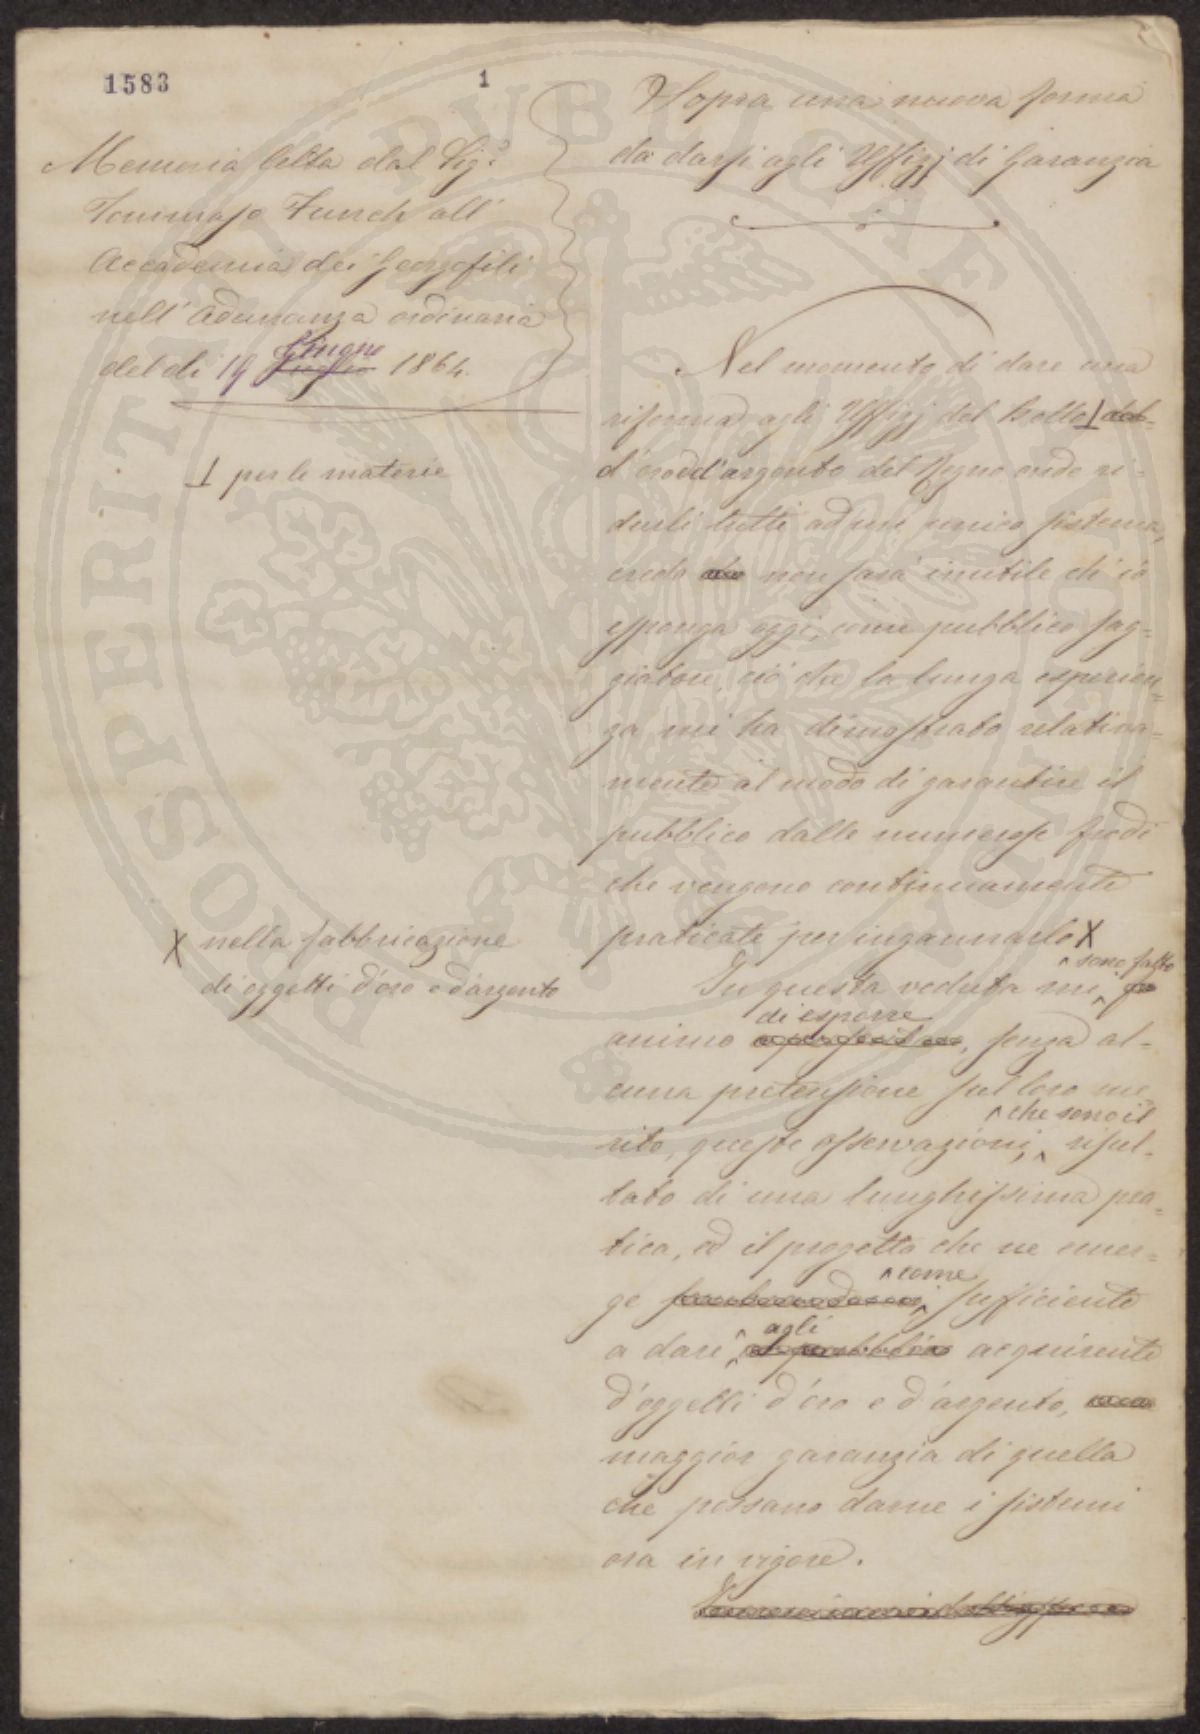 1583
1
Memoria letta dal Sig.r
Tommaso Funch all'
Accademia dei Georgofili
nell'Adunanza ordinaria
del dì 19 Giugno 1864.
⊥ per le materie
X nella fabbricazione
di oggetti d'oro e d'argento
Sopra una nuova forma
da darsi agli Uffizj di Garanzia
Nel momento di dare una
riforma agli Uffizj del bollo ⊥ del
d'oro e d'argento del Regno onde ri-
durli tutti ad un unico sistema,
credo non sarà inutile ch'io
esponga oggi, come pubblico sag=
giatore, ciò che la lunga esperien=
za mi ha dimostrato relativa=
mente al modo di garantire il
pubblico dalle numerose frodi
che vengono continuamente
praticate per ingannarlo X
sono fatto
In questa veduta mi
di esporre
animo, senza al-
cuna pretensione sul loro me
che sono il
rito, queste osservazioni, risul-
tato di una lunghissima pra=
tica, ed il progetto che ne emer=
come
ge sufficiente
agli
a dare acquirente
d'oggetti d'oro e d'argento,
maggior garanzia di quella
che possano darne i sistemi
ora in vigore.
PUBLICAE
PROSPERITATI